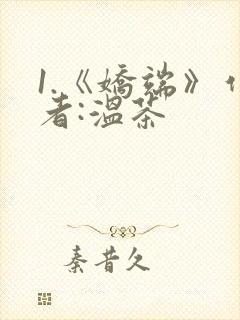 1.《嬌端》作
者:溫茶
秦昔久